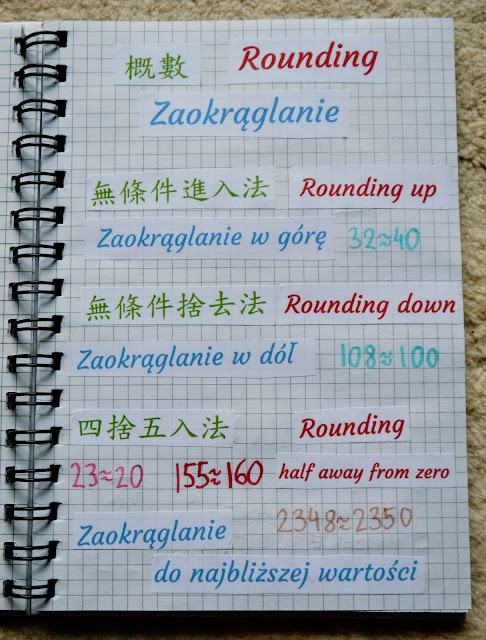 概數 Rounding
Zaokrąglanie
無條件進入法 Rounding up
Zaokrąglanie w górę 32≈40
無條件捨去法 Rounding down
Zaokrąglanie w dół 108≈100
四捨五入法 Rounding
23≈20 155≈160 half away from zero
Zaokrąglanie 2348≈2350
do najbliższej wartości